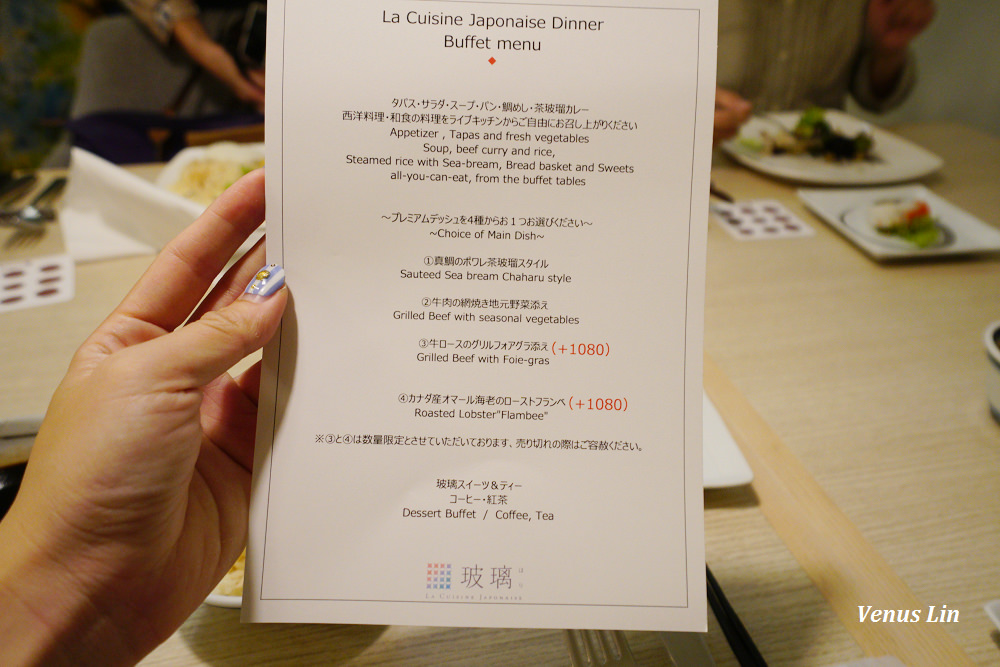 La Cuisine Japonaise Dinner
Buffet menu
タパス・サラダ・スープ・パン・鯛めし・茶玻瑠カレー
西洋料理・和食の料理をライブキッチンからご自由にお召し上がりください
Appetizer , Tapas and fresh vegetables
Soup, beef curry and rice,
Steamed rice with Sea-bream, Bread basket and Sweets
all-you-can-eat, from the buffet tables
～プレミアムデッシュを4種からお１つお選びください～
~Choice of Main Dish~
①真鯛のポワレ茶玻瑠スタイル
Sauteed Sea bream Chaharu style
②牛肉の網焼き地元野菜添え
Grilled Beef with seasonal vegetables
③牛ロースのグリルフォアグラ添え(+1080)
Grilled Beef with Foie-gras
④カナダ産オマール海老のローストフランベ(+1080)
Roasted Lobster"Flambee"
※③と④は数量限定とさせていただいております、売り切れの際はご容赦ください。
玻璃スイーツ＆ティー
コーヒー・紅茶
Dessert Buffet / Coffee, Tea
玻璃 はり
La Cuisine Japonaise
Venus Lin